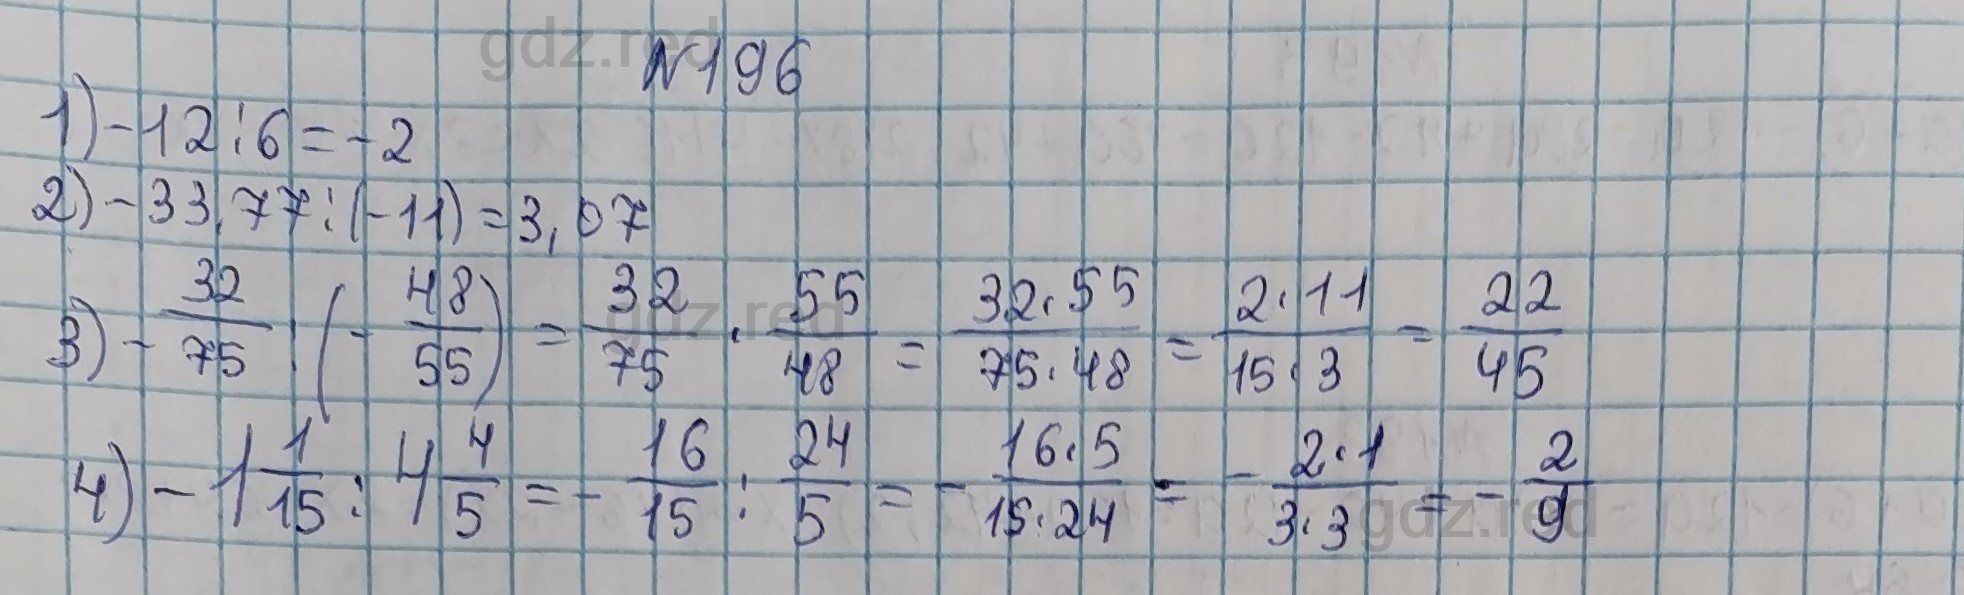 gdz.red
№196
1) -12:6=-2
2) -33,77:(-11)=3,07
3) - 32/75 : (- 48/55) = 32/75 · 55/48 = 32·55/75·48 = 2·11/15·3 = 22/45
gdz.red
4) -1 1/15 : 4 4/5 = - 16/15 : 24/5 = - 16·5/15·24 = - 2·1/3·3 = - 2/9
gdz.red